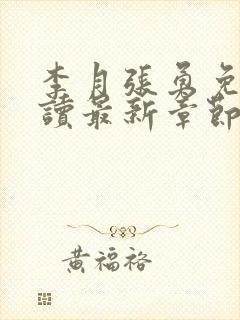 李月張勇免
讀最新章節
黃福裕